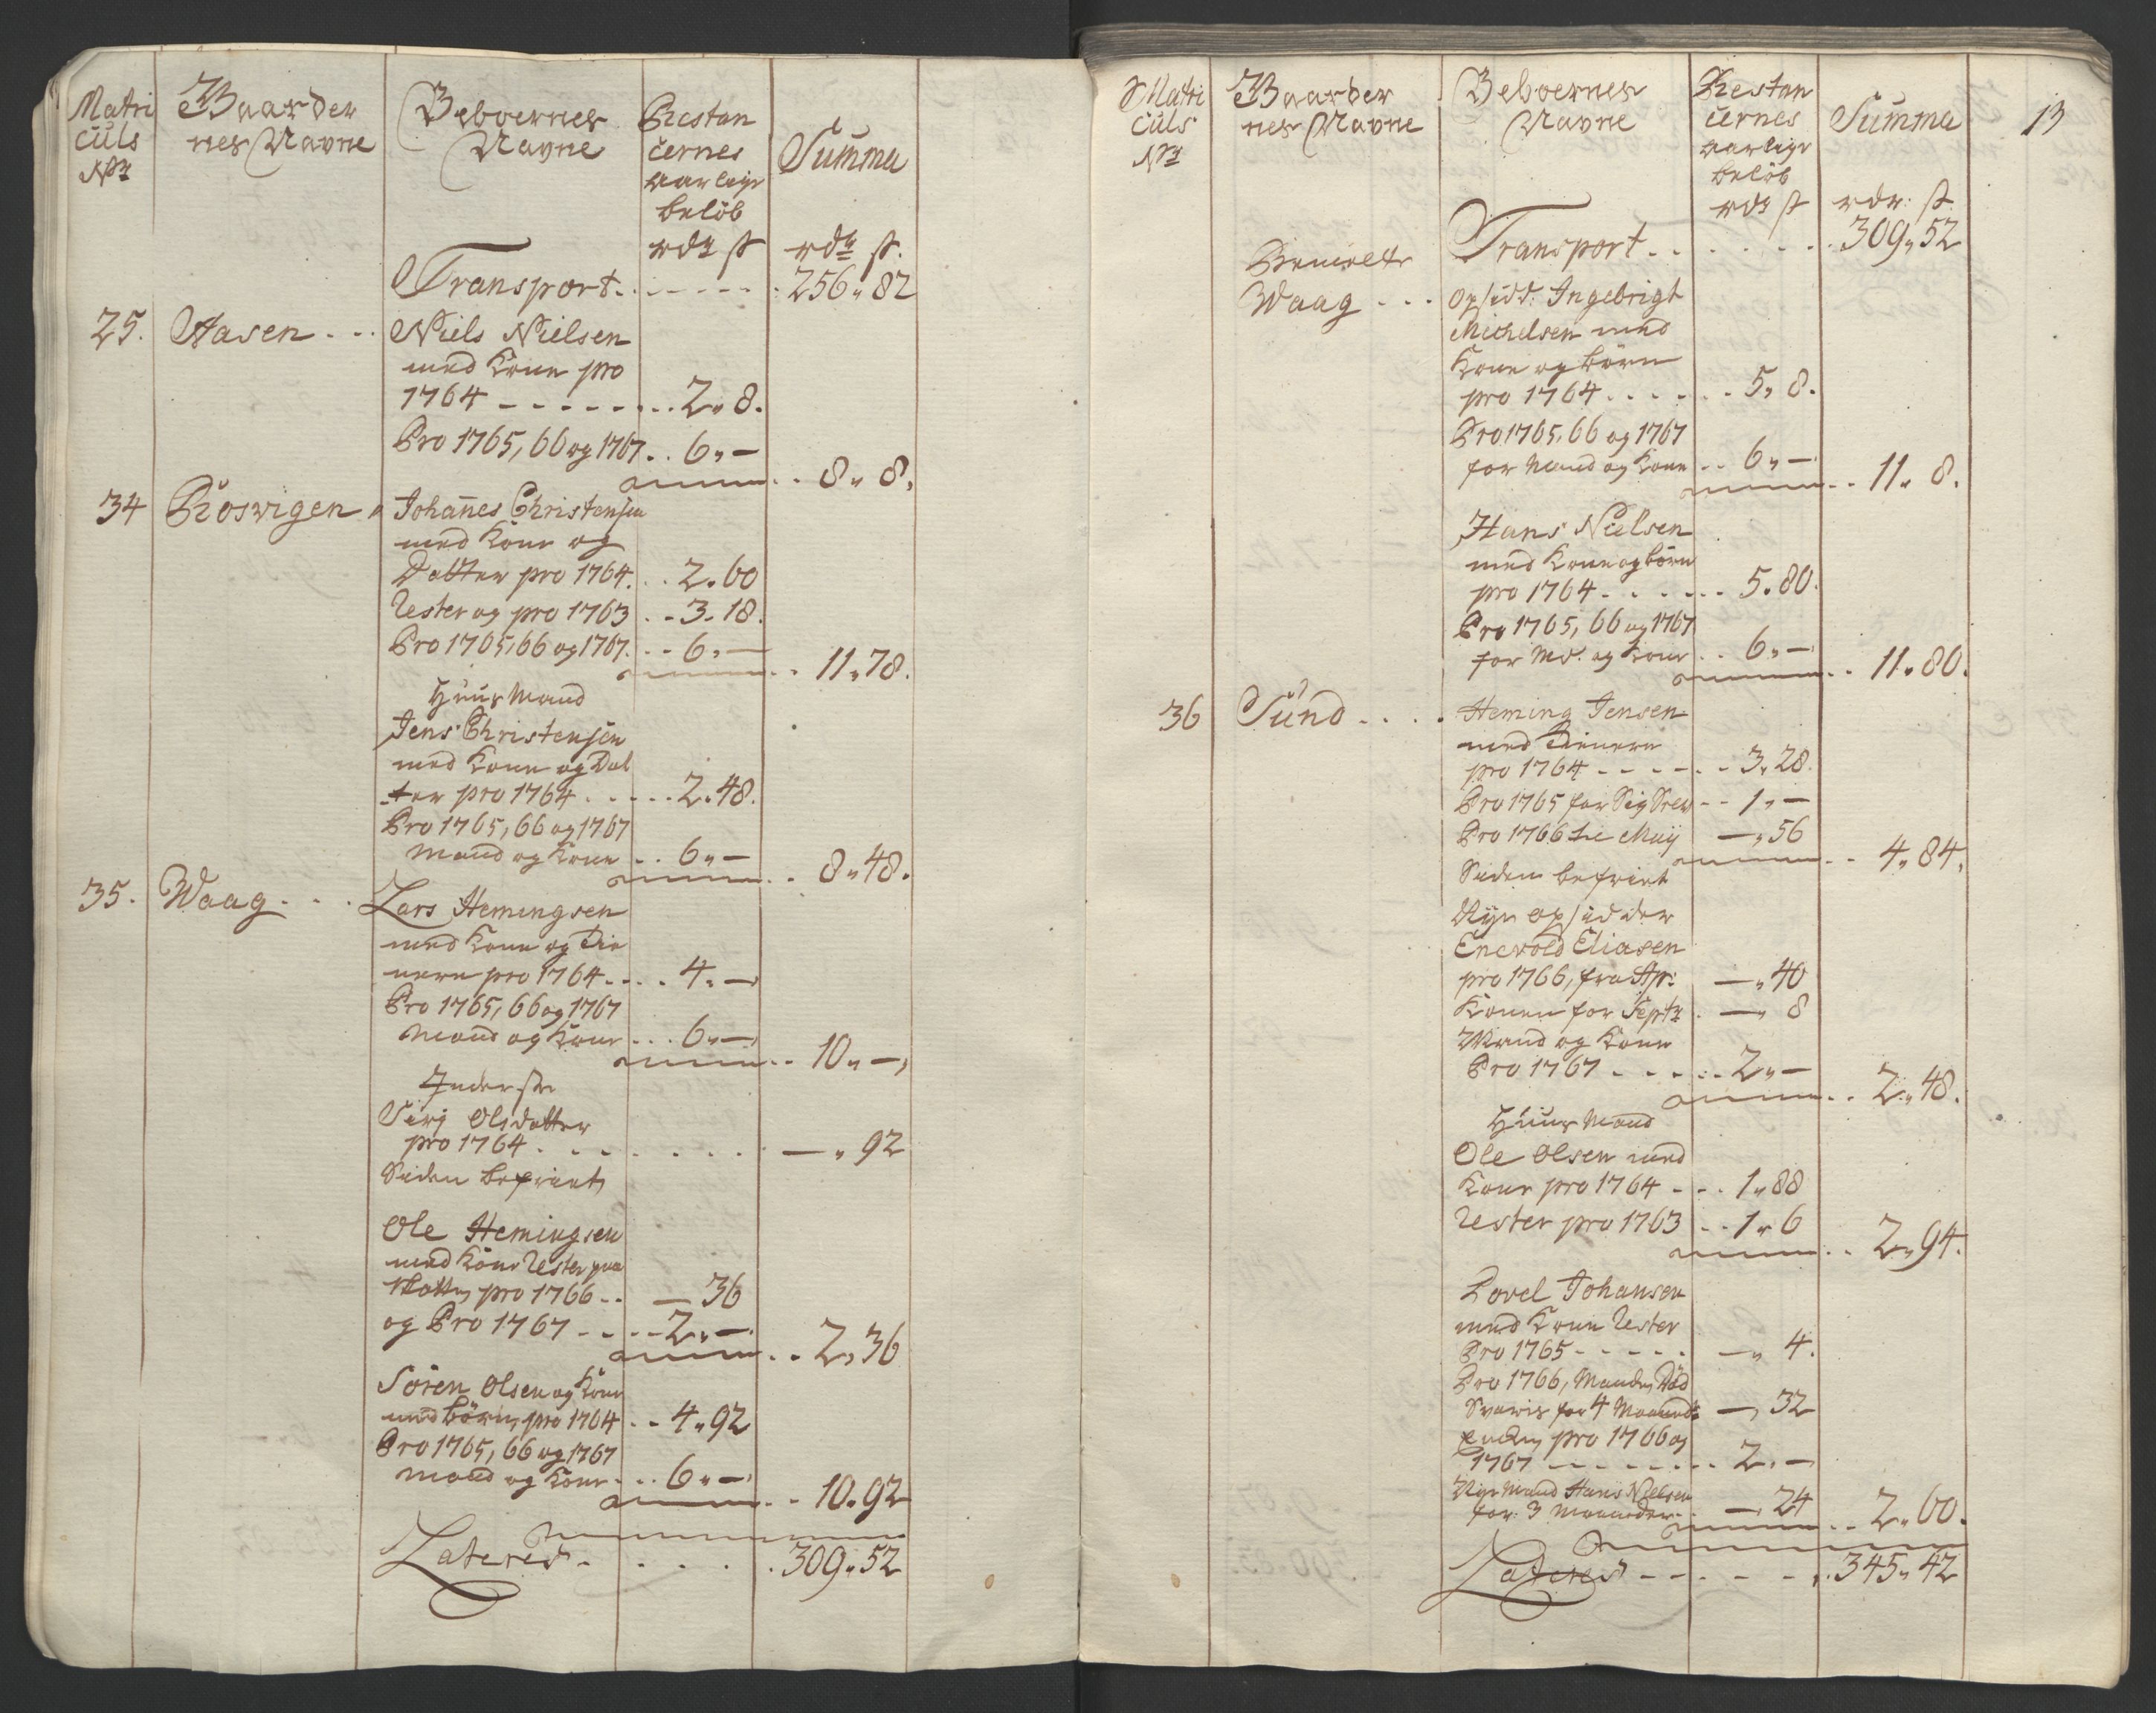 Matri
culs
No
Gaarder
nes Navne
Beboernes
Navne
Restan
cernes
aarlige
beløb
rdr ß
Summa
rdr ß.
Transport . . . . . . 256 " 82
25. Aasen . . . Niels Nielsen
med Kone pro
1764 - - - - - - - . . 2 " 8.
Pro 1765, 66 og 1767 . . 6 " -
8 " 8.
34 Rosvigen " Johannes Christensen
med Kone og
Datter pro 1764 . . 2 " 60
Rester og pro 1763 . - 3 - 18.
Pro 1765, 66 og 1767. . - 6 " -
11 " 78.
Huus Mand
Jens Christensen
med Kone og Dat
ter pro 1764 . . . . . 2 " 48.
Pro 1765, 66 og 1767
Mand og Kone . . 6 " -
8 " 48.
35. Waag . . . Lars Hemingsen
med Kone og Tie
nere pro 1764 . . . . 4 " -
Pro 1765, 66 og 1767
Mand og Kone . . . 6 " -
10 " -
Inderste
Sirj Olsdatter
pro 1764 . . . . . . . . - " 92
Siden befriet
Ole Hemingsen
med Kone Rester paa
Skatten pro 1766 . . - 36
og Pro 1767 - . . - - 2 " -
2 " 36
Sören Olsen og Kone
med börn, pro 1764 . . 4 " 92
Pro 1765, 66 og 1767
Mand og Kone . . . 6 " -
10 " 92
Lateres . . . . . . 309 " 52
13
Matri
culs
No
Gaarder
nes Navne
Beboernes
Navne
Restan
cernes
aarlige
beløb
rdr ß
Summa
rdr: ß.
Transport . . . . . . . 309 " 52
Waag - - . Opsidd: Ingebrigt
Michelsen med
Kone og börn
pro 1764 . . . . . . . 5 " 8.
Pro 1765, 66 og 1767
for Mand og Kone . . 6 " -
11 " 8.
Hans Nielsen
med Kone og börn
pro 1764 . . . . . . . 5 " 80.
Pro 1765, 66 og 1767
for Md. og Kone . . 6 " -
11 " 80.
36 Sund . . . . Heming Jensen
med Tienere
pro 1764 - - - - . - 3 " 28.
Pro 1765 for Sig Selv - - 1 " -
Pro 1766 til Maij - " 56
4 " 84.
Siden befriet
Nye opsidder
Enevold Eliasen
pro 1766, fra Apr: - " 40
Konen for Septr . - " 8
Mand og Kone
Pro 1767 . . . . . . 2 " -
2 " 48.
Huus Mand
Ole Olsen med
Kone pro 1764 - - . 1 " 88
Rester pro 1763 . . 1 " 6
2 " 94.
Povel Johansen
med Kone Rester
Pro 1765 - - - - . - " 4.
Pro 1766, Manden Död
Svaris for 4 Maaneder - " 32
Enken pro 1766 og
1767 - - - - - - - . 2 " -
Nye Mand Hans Nielsen
for 3 Maaneder - - " 24
2 " 60.
Lateres - - - - - - . 345 " 42